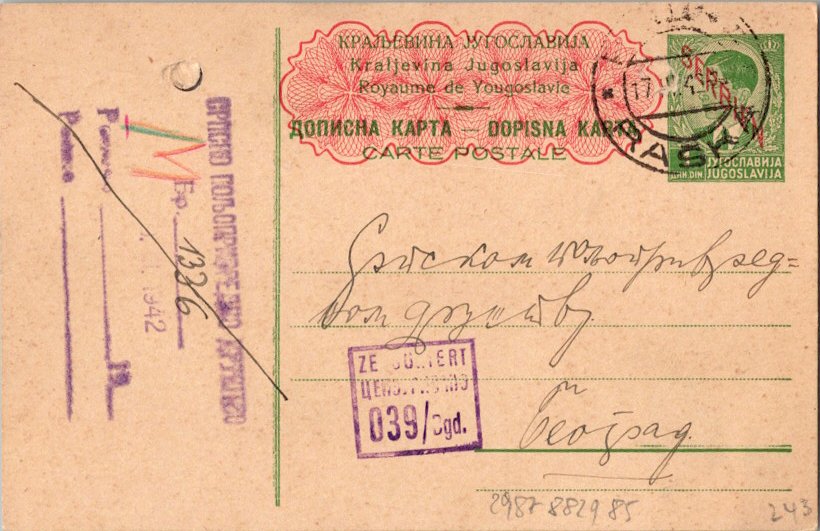 КРАЉЕВИНА ЈУГОСЛАВИЈА
Kraljevina Jugoslavija
Royaume de Yougoslavie
ДОПИСНА КАРТА — DOPISNA KARTA
CARTE POSTALE
SERBIEN
17
RAŠKA
ЈУГОСЛАВИЈА
DIN.DIN JUGOSLAVIJA
СРПСКО ПОЉОПРИВРЕДНО ДРУШТВО
М
Бр. 1336
1942
19
Српском пољопривред-
ном друштву
ZENSURIERT
ЦЕНЗУРИСАНО
039/Bgd.
Београд
2987 8829 85
243